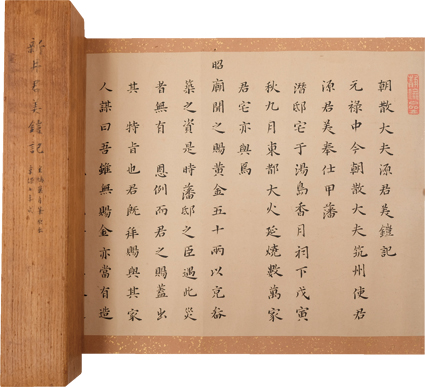 朝散大夫源君美鎧記
元禄中今朝散大夫筑州使君
源君美奉仕甲藩
潜邸宅于湯島香月祠下戊寅
秋九月東都大火延燒數萬家
君宅亦與焉
昭廟聞之賜黄金五十兩以充
築之資是時藩邸之臣遇此災
者無有 恩例而君之賜蓋出
其 特旨也君既拜賜與其家
人謀曰吾雖無賜金亦當有造
新井君美鎧記